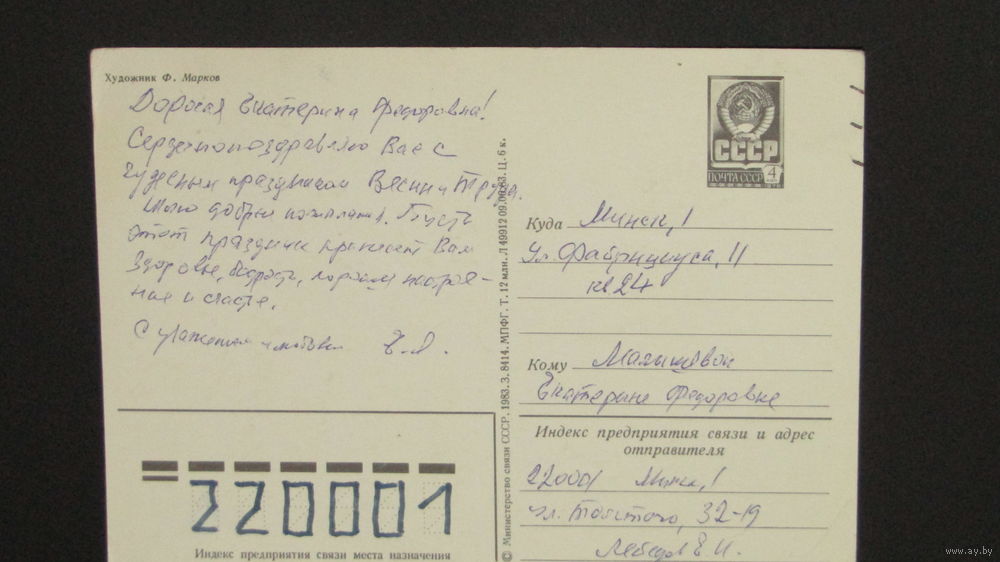 Художник Ф. Марков
Дорогая Екатерина Федоровна!
Сердечно поздравляю Вас с
чудесным праздником Весны и Труда.
Шлю добрые пожелания. Пусть
этот праздник принесет Вам
здоровье, бодрость, хорошее настрое-
ние и счастье.
С уважением и
© Министерство связи СССР. 1983. З. 8414. МПФГ. Т. 12 млн. Л 49912 09.06.83. Ц. 6 к.
СССР
ПОЧТА СССР 4
Куда Минск, 1
ул. Фабрициуса, 11
кв 24
Кому Малышевой
Екатерине Федоровне
Индекс предприятия связи и адрес
отправителя
220001 Минск, 1
ул. Толстого, 32-19
Лебедев Е. И.
220001
Индекс предприятия связи места назначения
www.ay.by